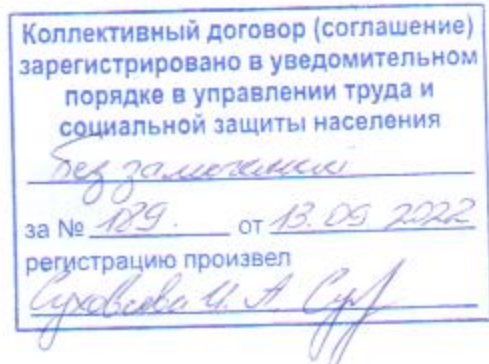 Коллективный договор (соглашение)
зарегистрировано в уведомительном
порядке в управлении труда и
социальной защиты населения
без замечаний
за № 189. от 13.09 2022
регистрацию произвел
И. А.